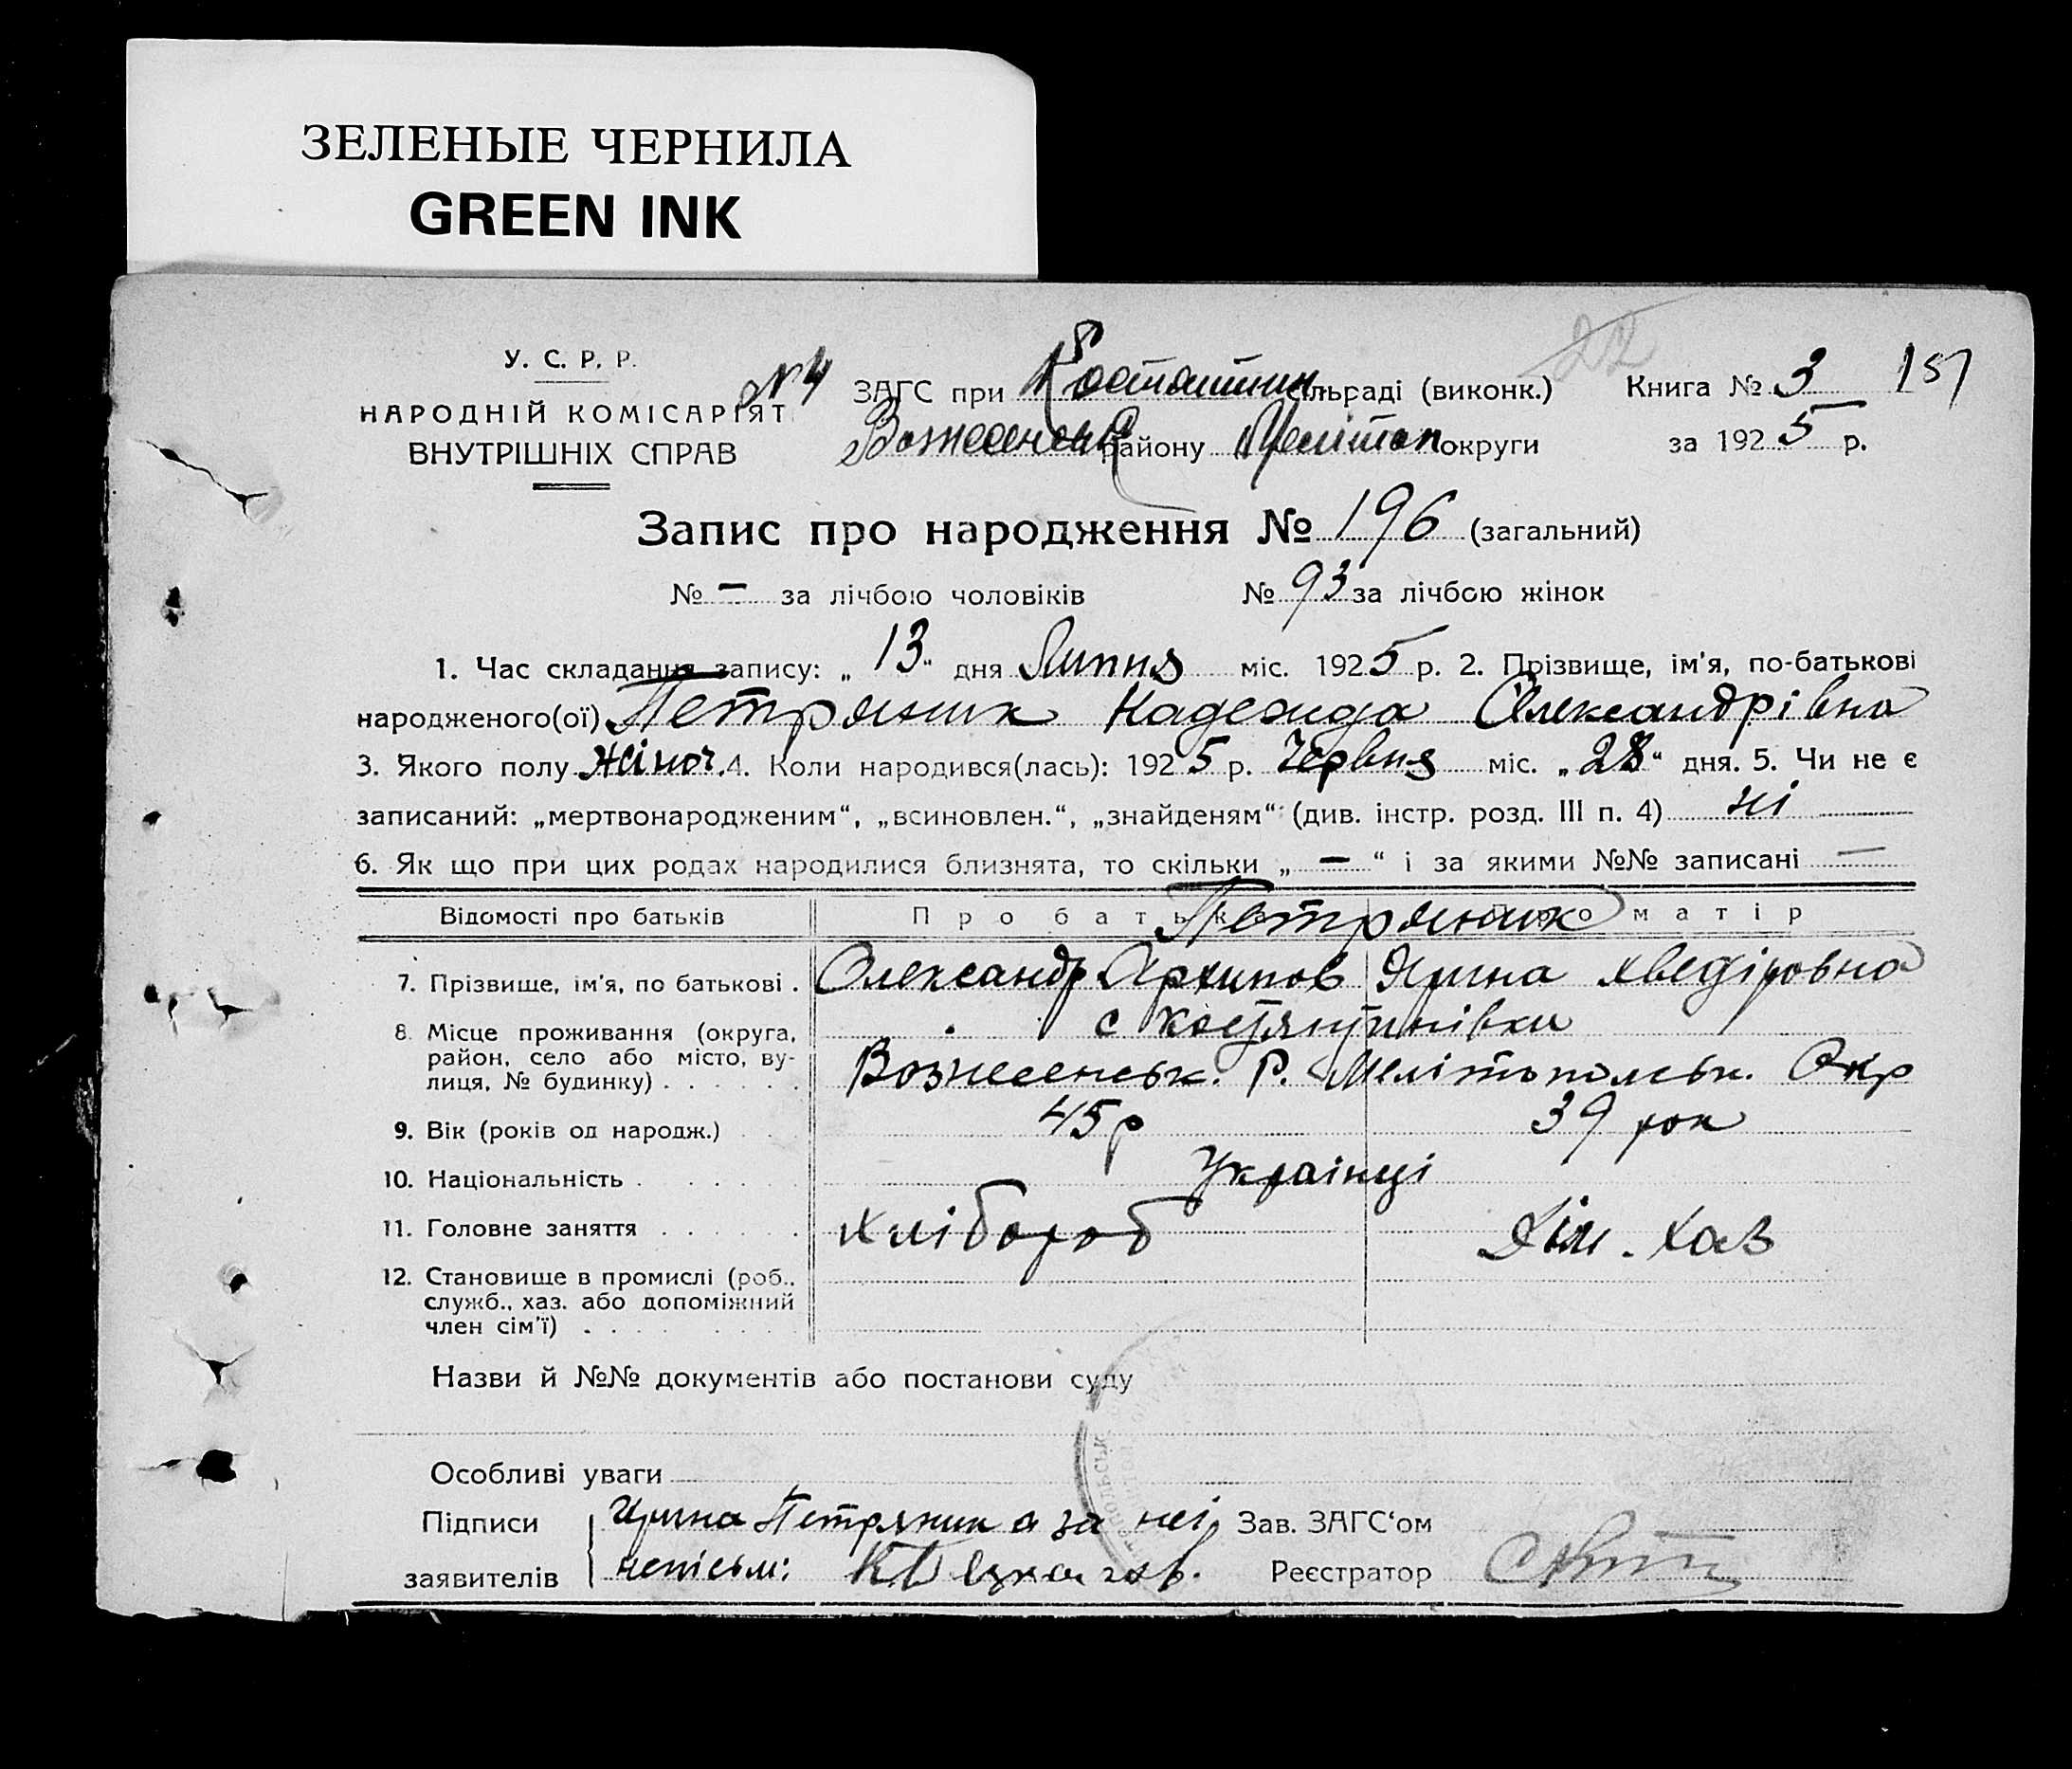 ЗЕЛЕНЫЕ ЧЕРНИЛА
GREEN INK
22
У. С. Р. Р.
НАРОДНІЙ КОМІСАРІЯТ
ВНУТРІШНІХ СПРАВ
№ 4 ЗАГС при Костантин. сільраді (виконк.) Книга № 3 157
Вознесенськ району Мелітоп округи за 1925 р.
Запис про народження № 196 (загальний)
№ — за лічбою чоловіків № 93 за лічбою жінок
1. Час складання запису: „13“ дня Липня міс. 1925 р. 2. Прізвище, ім'я, по-батькові
народженого(ої) Петряник Надежда Олександрівна
3. Якого полу Жіноч. 4. Коли народився(лась): 1925 р. Червня міс. „28“ дня. 5. Чи не є
записаний: „мертвонародженим“, „всиновлен.“, „знайденям“ (див. інстр. розд. III п. 4) ні
6. Як що при цих родах народилися близнята, то скільки „—“ і за якими №№ записані —
Відомості про батьків Про батька Про матір
Петряник
7. Прізвище, ім'я, по батькові . Олександр Архипов Ярина Хведіровна
8. Місце проживання (округа, район, село або місто, вулиця, № будинку) с Костянтинівки
Вознесенськ. Р. Мелітопольськ. Окр
9. Вік (років од народж.) 45 р 39 рок
10. Національність Українці
11. Головне заняття Хлібороб Дім. хаз
12. Становище в промислі (роб.,
служб., хаз. або допоміжний
член сім'ї)
Назви й №№ документів або постанови суду
Особливі уваги
Підписи Ирина Петряник а за неі Зав. ЗАГС'ом
заявителів неписьм: Реєстратор